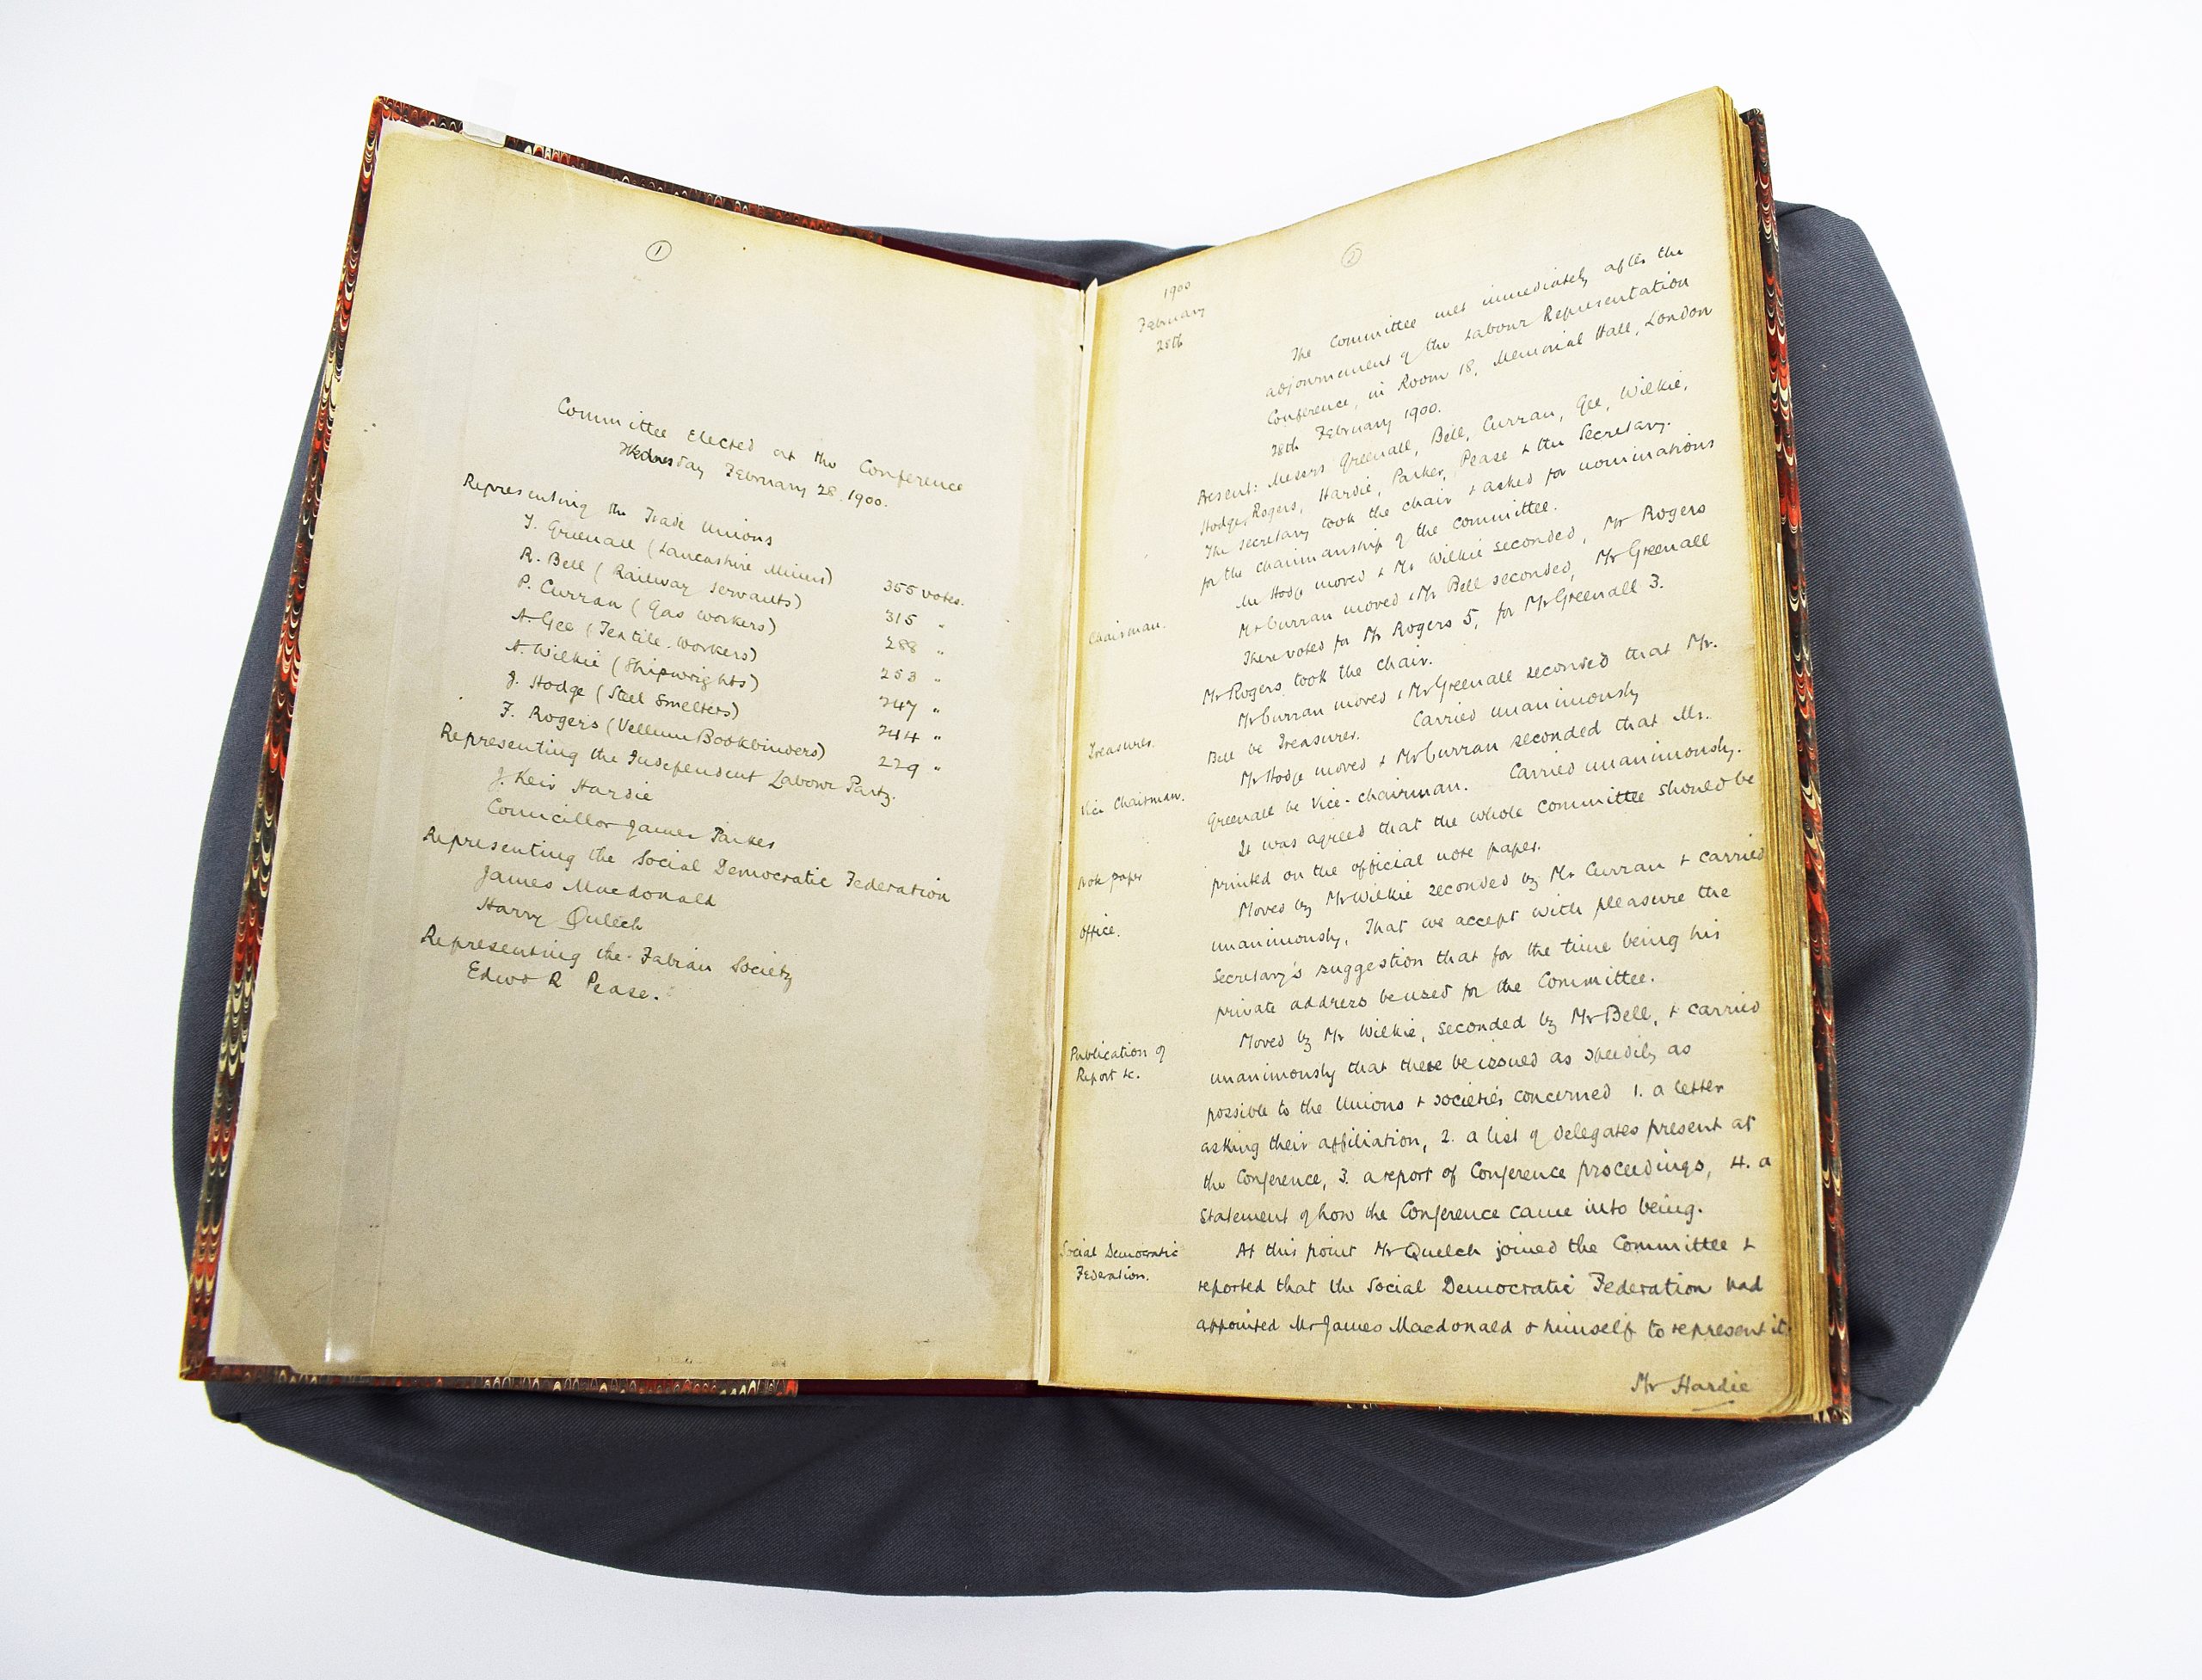 1
Committee Elected at the Conference
Wednesday February 28. 1900.
Representing the Trade Unions
T. Greenall (Lancashire Miners) 355 votes.
R. Bell (Railway Servants) 315 "
P. Curran (Gas Workers) 288 "
A. Gee (Textile. Workers) 253 "
A. Wilkie (Shipwrights) 247 "
J. Hodge (Steel Smelters) 244 "
F. Rogers (Vellum Bookbinders) 229 "
Representing the Independent Labour Party.
J. Keir Hardie
Councillor James Parker
Representing the Social Democratic Federation
James Macdonald
Harry Quelch
Representing the Fabian Society
Edwd R Pease.
2
1900
February
28th
The Committee met immediately after the
adjournment of the Labour Representation
Conference, in Room 18, Memorial Hall, London
28th February 1900.
Present: Messrs Greenall, Bell, Curran, Gee, Wilkie,
Hodge, Rogers, Hardie, Parker, Pease & the Secretary.
The Secretary took the chair & asked for nominations
for the chairmanship of the Committee.
Chairman.
Mr Hodge moved & Mr Wilkie seconded, Mr Rogers
Mr Curran moved & Mr Bell seconded, Mr Greenall
There voted for Mr Rogers 5, for Mr Greenall 3.
Mr Rogers took the chair.
Treasurer.
Mr Curran moved & Mr Greenall seconded that Mr.
Bell be Treasurer. Carried unanimously
Vice Chairman.
Mr Hodge moved & Mr Curran seconded that Mr.
Greenall be Vice-chairman. Carried unanimously.
Note paper
It was agreed that the whole Committee should be
printed on the official note paper.
Office.
Moved by Mr Wilkie seconded by Mr Curran & carried
unanimously, That we accept with pleasure the
Secretary's suggestion that for the time being his
private address be used for the Committee.
Publication of
Report &c.
Moved by Mr Wilkie, seconded by Mr Bell, & carried
unanimously that there be issued as speedily as
possible to the Unions & societies concerned 1. a letter
asking their affiliation, 2. a list of delegates present at
the Conference, 3. a report of Conference proceedings, 4. a
statement of how the Conference came into being.
Social Democratic
Federation.
At this point Mr Quelch joined the Committee &
reported that the Social Democratic Federation had
appointed Mr James Macdonald & himself to represent it.
Mr Hardie